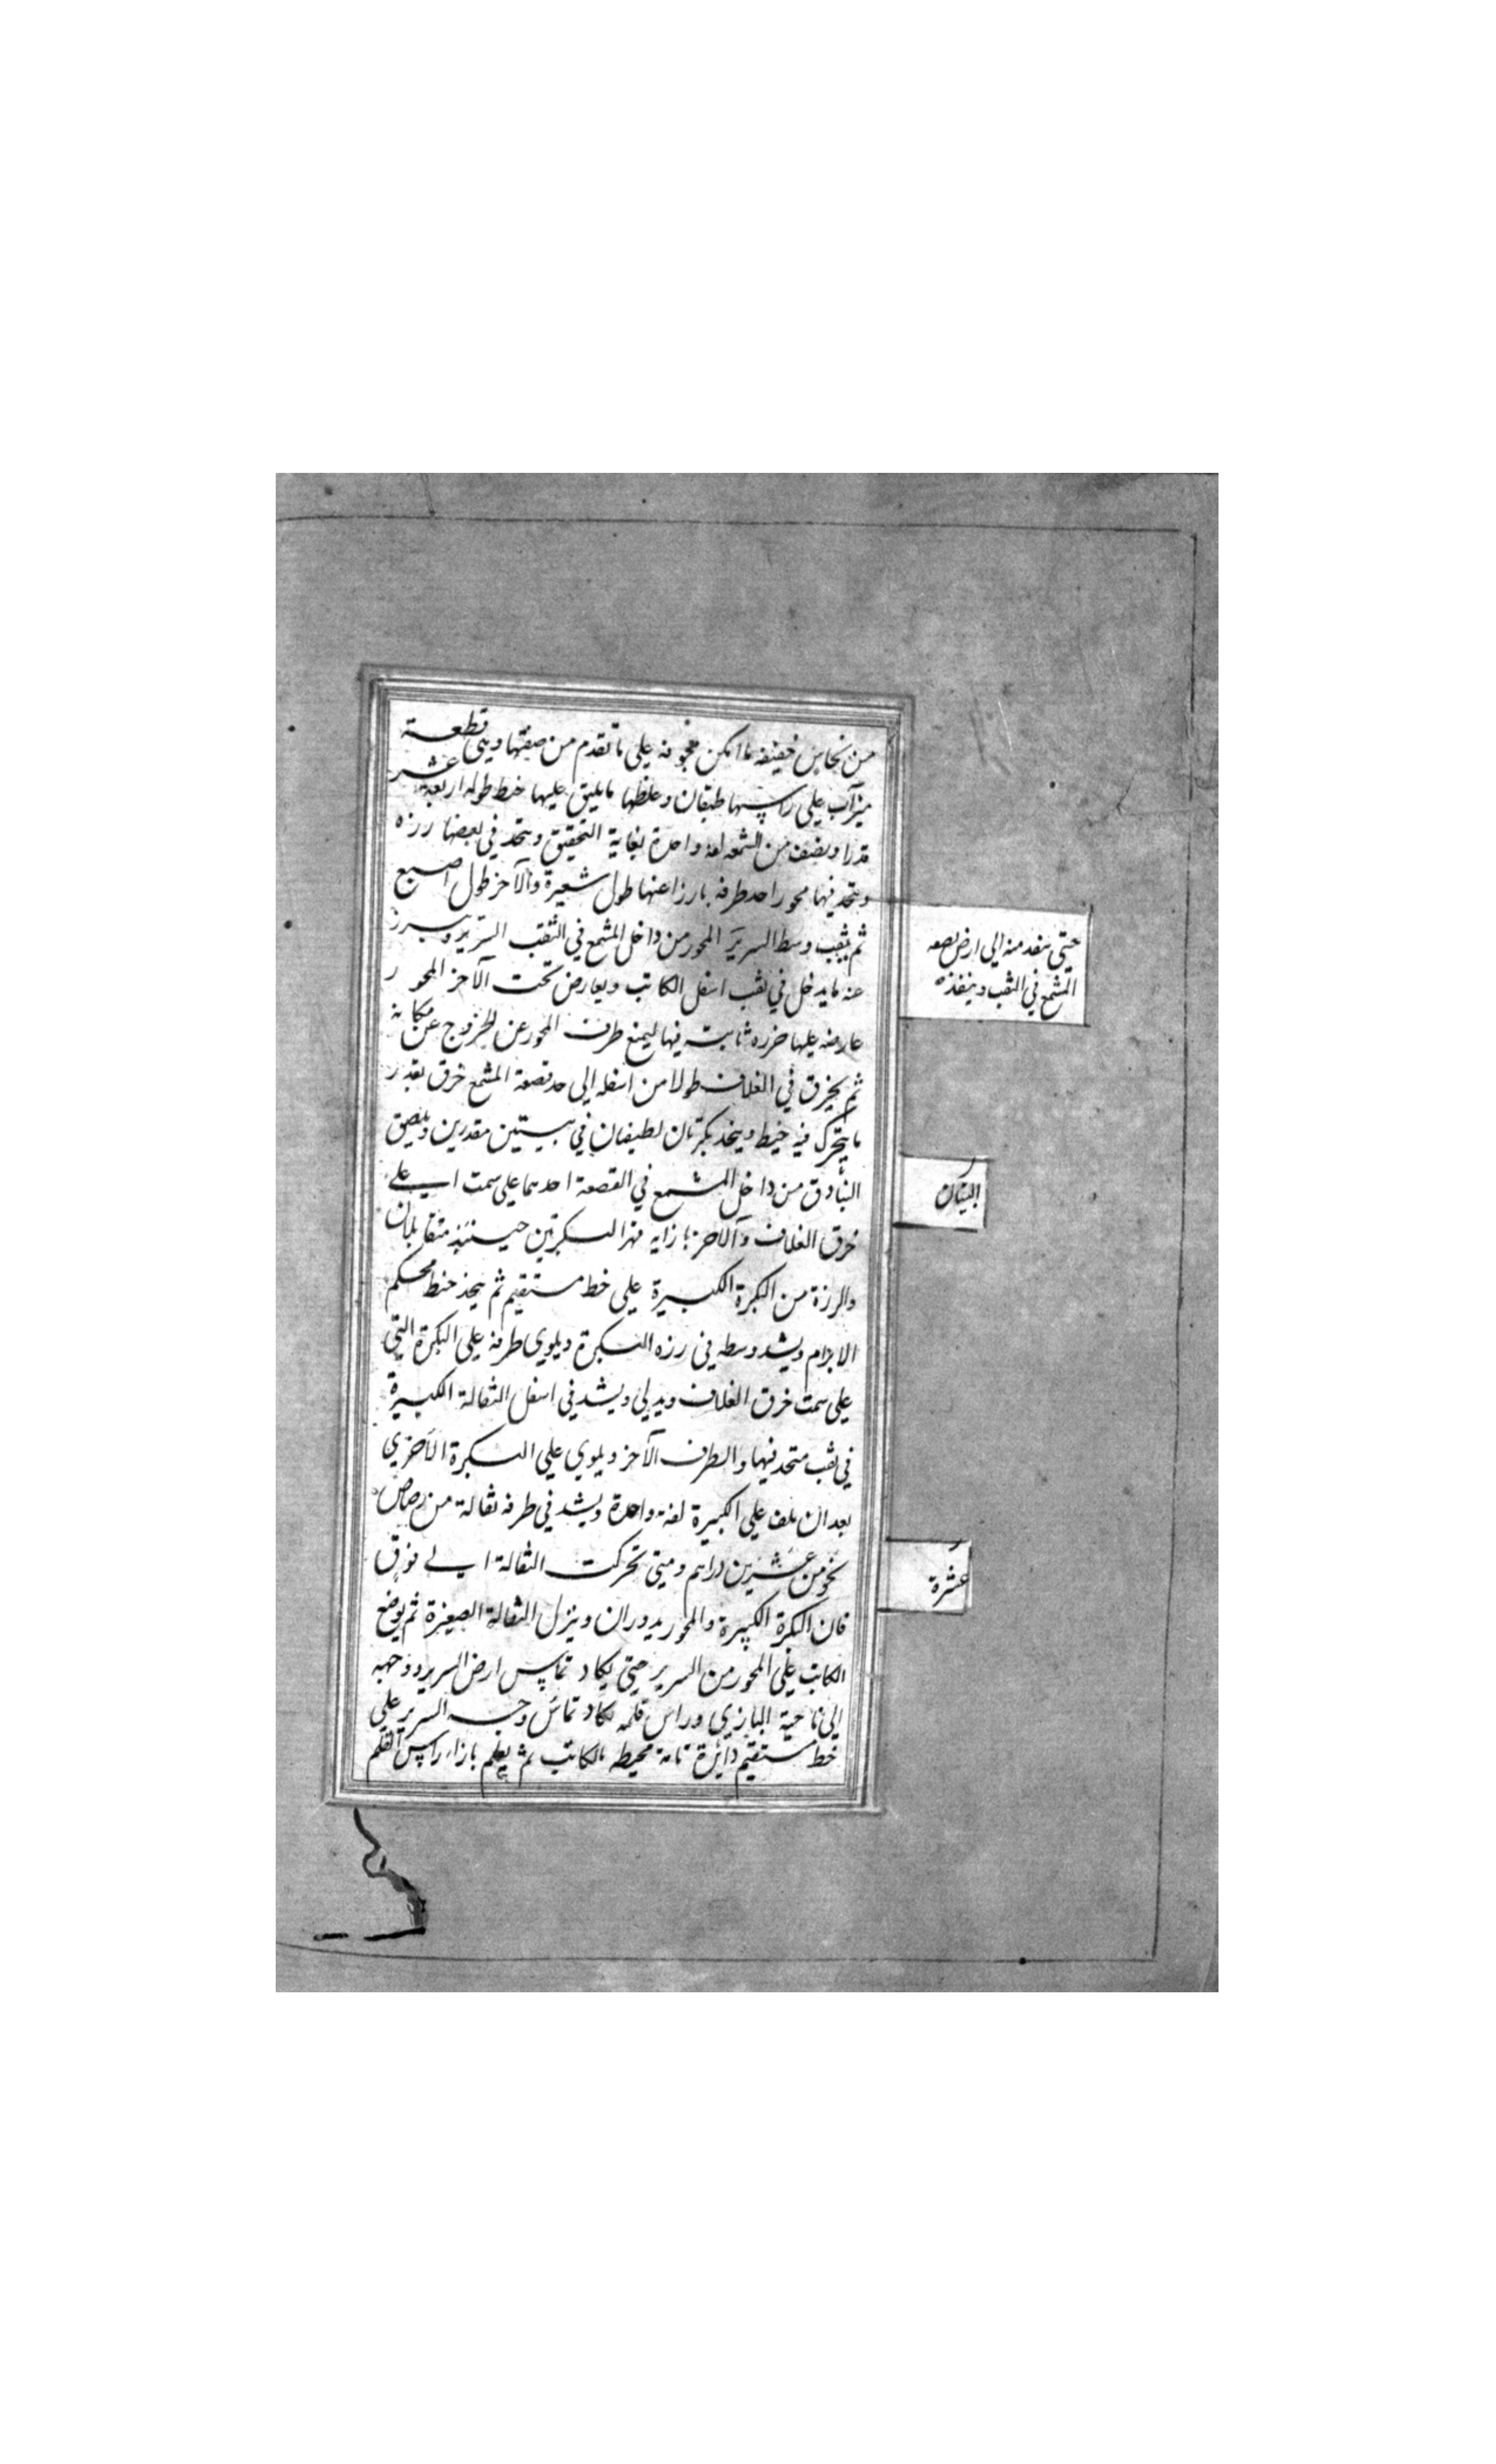 من نحاس خفيفه ما امكن مجوفه على ما تقدم من صفتها ويثنى قطعة
ميزاب على راسها طبقان وغلظها ما يليق عليها خيط طوله اربعة عشر
قدرا ونصف من الشمعه لفه واحدة بغاية التحقيق ويتخذ في بعضها رزه
ويتخذ فيها محور احد طرفه بارزا عنها طول شعيرة والآخر طول اصبع
ثم يثقب وسط السرير المحور من داخل المشمع في الثقب السرير ويبرز
عنه ما يدخل في ثقب اسفل الكاتب ويعارض تحت الآخر المحور
عارضه عليها خرزه ثابته فيها ليمنع طرف المحور عن الخروج عن مكانه
ثم يخرق في الغلاف طولا من اسفله الى حد قصعة المشمع خرق بقدر
ما يتحرك فيه خيط ويتخذ بكرتان لطيفان في بيتين مقدرين ويلصق
البنادق من داخل المشمع في القصعة احدهما على سمت اعلى
خرق الغلاف والآخر بازايه فهذا البكرتين حينئذ متقابلان
والرزة من البكرة الكبيرة على خط مستقيم ثم يتخذ خيط محكم
الابرام ويشد وسطه في رزه البكرة ويلوى طرفه على البكرة التي
على سمت خرق الغلاف ويدلى ويشد في اسفل الثقالة الكبيرة
في ثقب متخذ فيها والطرف الآخر ويلوى على البكرة الأخرى
بعد ان يلف على الكبيرة لفة واحدة ويشد في طرفه ثقالة من رصاص
نحو من عشرين دراهم ومتى تحركت الثقالة الى فوق
فان البكرة الكبيرة والمحور يدوران وينزل الثقالة الصغيرة ثم يوضع
الكاتب على المحور من السرير حتى يكاد تماس ارض السرير ووجهه
الى ناحية البازي وراس قلمه يكاد تماس وجه السرير على
خط مستقيم دائرة تامة محيطه بالكاتب ثم يعلم بازاء راس القلم
حتى ينفد منه الى ارض قصعه
المشمع في الثقب وينفذه
البيتان
عشرة